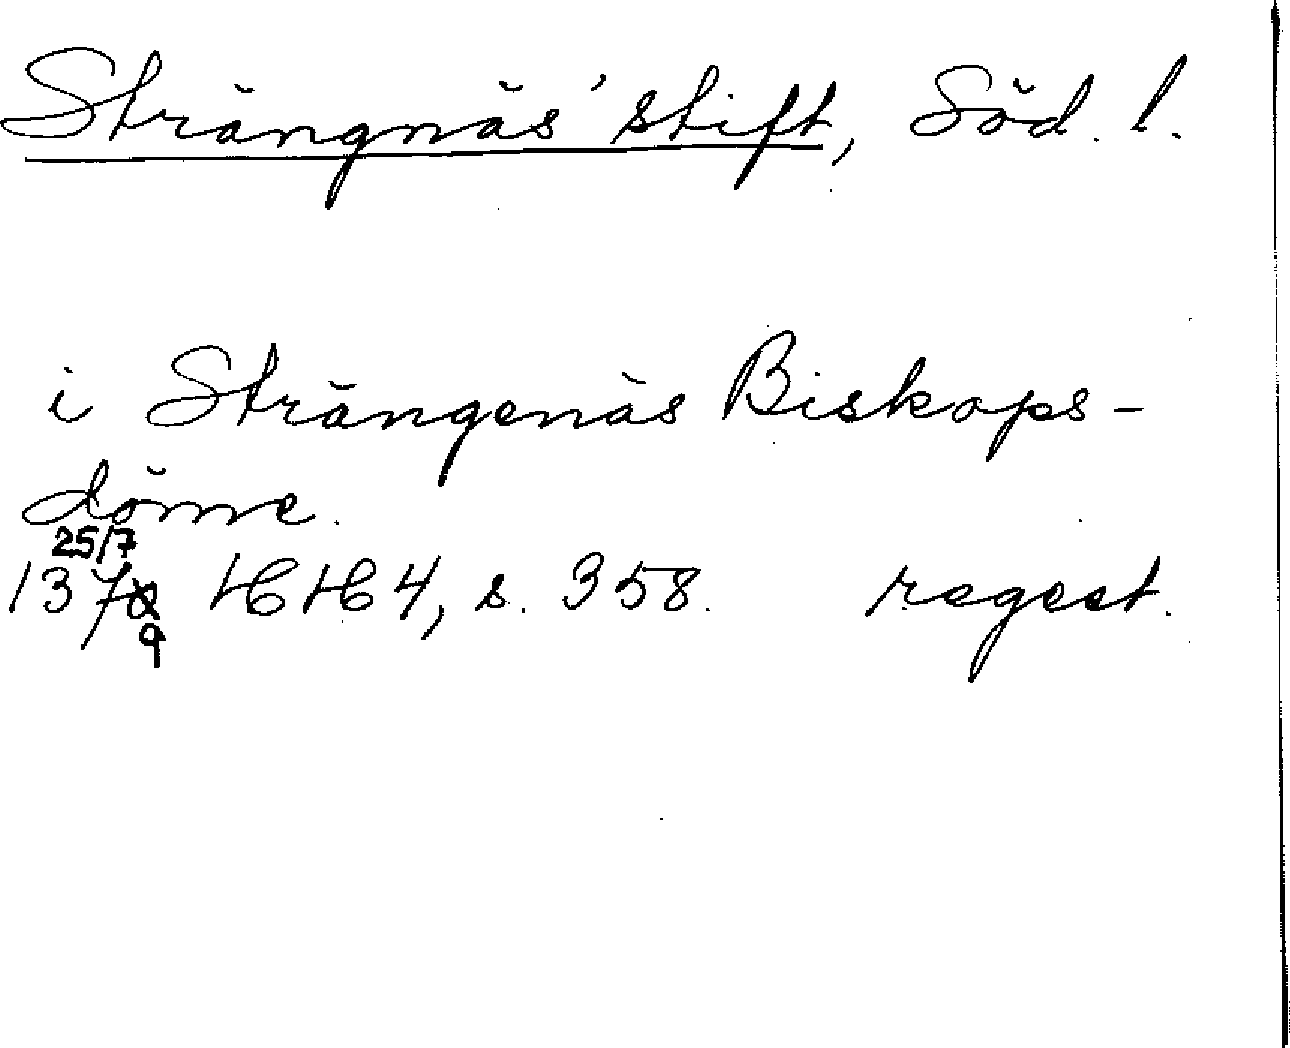 Strängnäs' stift, Söd. l.
i Strängenäs Biskops-
döme.
25/7
1379 HH 4, s. 358. regest.